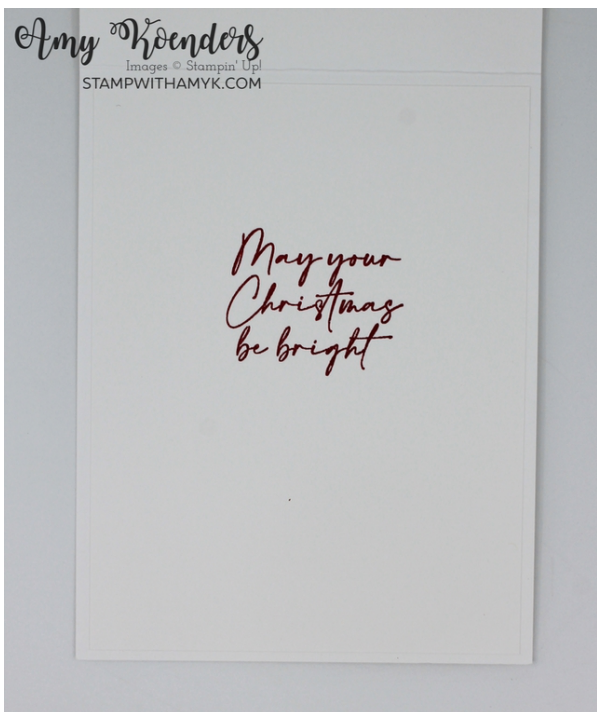 Amy Koenders
Images © Stampin' Up!
STAMPWITHAMYK.COM
May your
Christmas
be bright